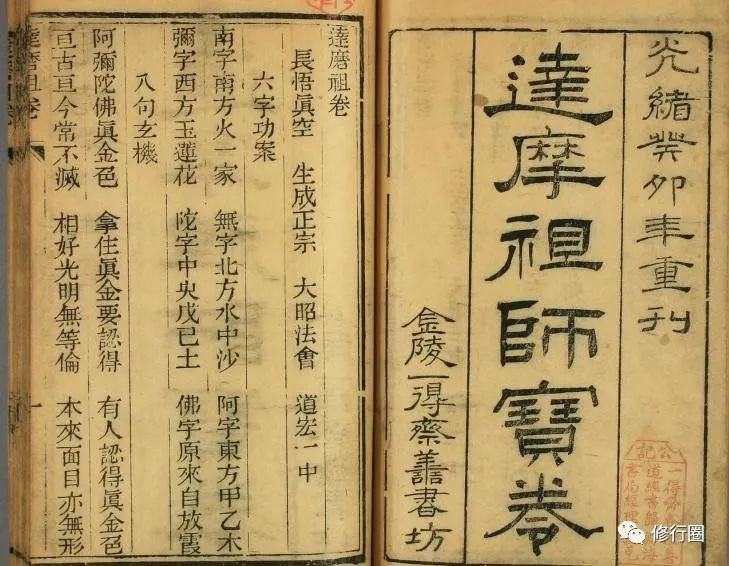 光緒癸卯年重刊
達摩祖師寶卷
金陵一得齋善書坊
達磨祖卷
長悟眞空 生成正宗 大昭法會 道宏一中
六字功案
南字南方火一家 無字北方水中沙 阿字東方甲乙木
彌字西方玉蓮花 陀字中央戊已土 佛字原來自放霞
八句玄機
阿彌陀佛眞金色 拿住眞金要認得 有人認得眞金色
亘古亘今常不滅 相好光明無等倫 本來面目亦無形
達磨祖卷
一
修行圈